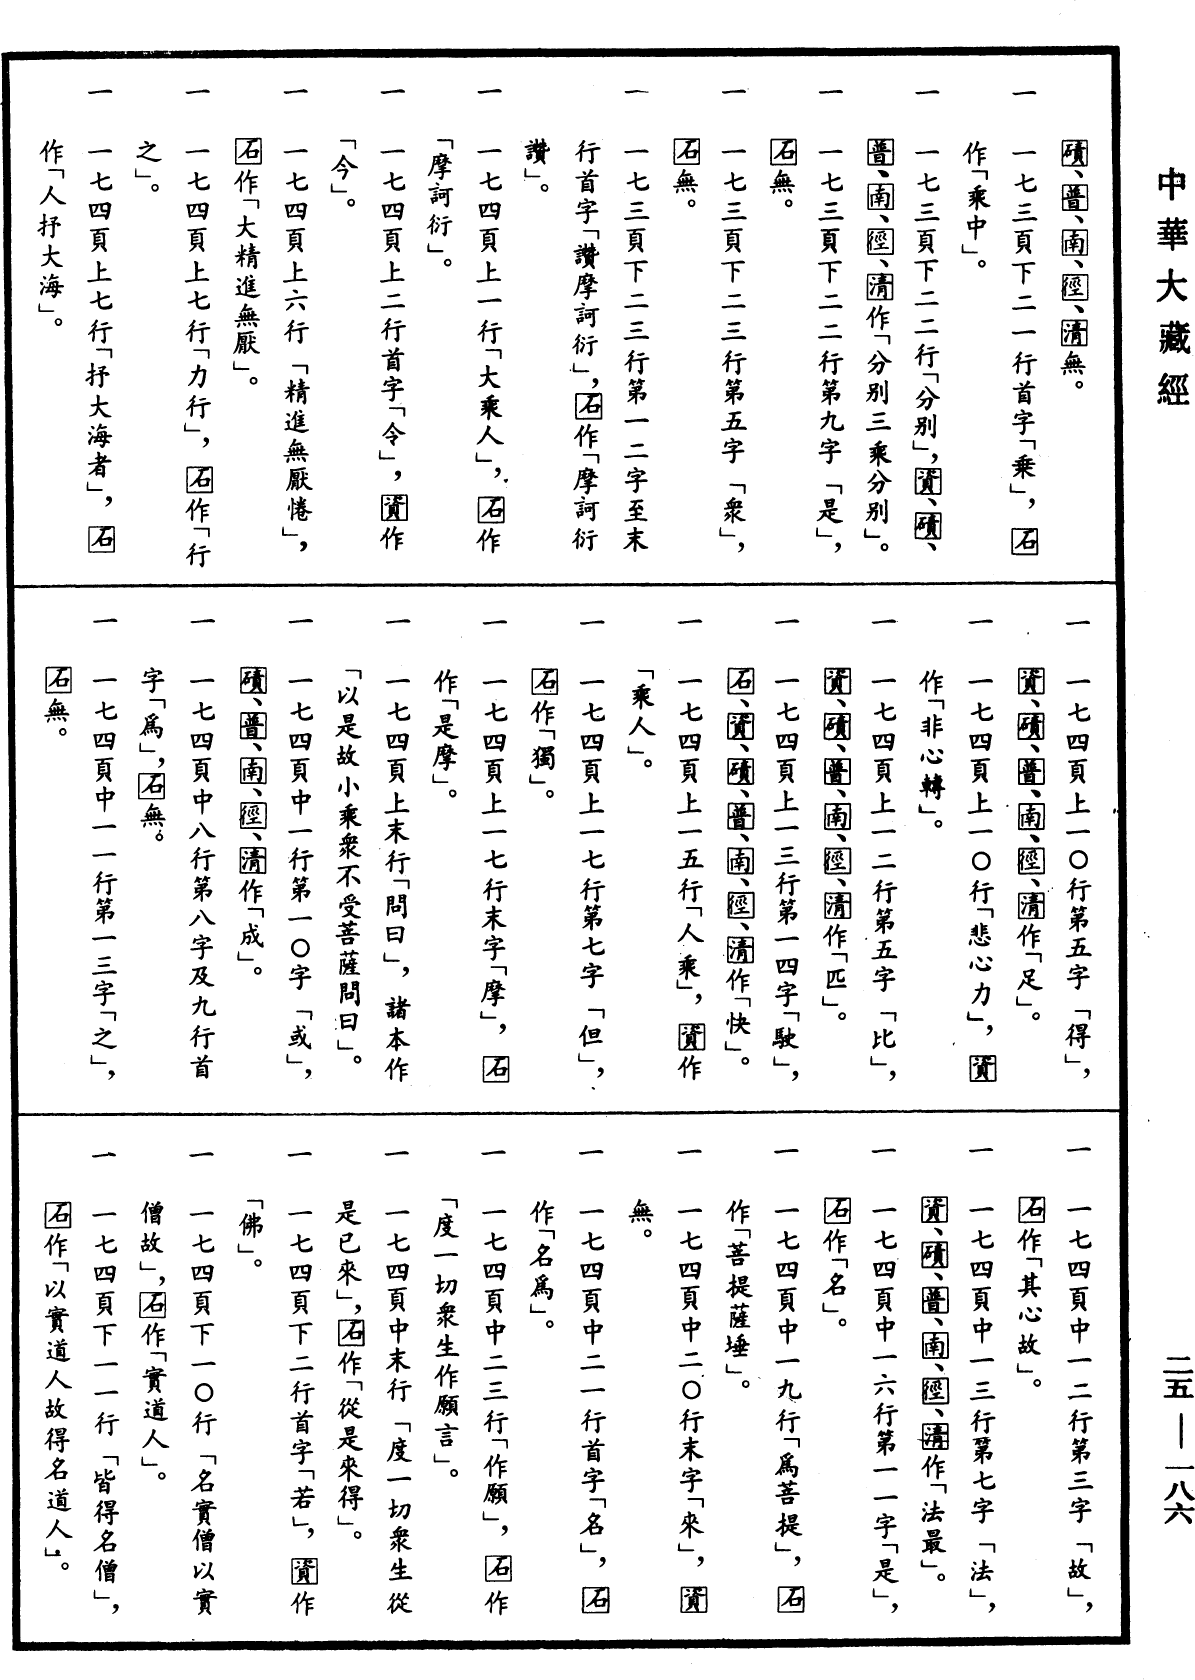 中華大藏經
磧、普、南、徑、清無。
一 一七三頁下二一行首字「乘」，石
作「乘中」。
一 一七三頁下二二行「分别」，資、磧、
普、南、徑、清作「分别三乘分别」。
一 一七三頁下二二行第九字「是」，
石無。
一 一七三頁下二三行第五字「衆」，
石無。
一 一七三頁下二三行第一二字至末
行首字「讚摩訶衍」，石作「摩訶衍
讚」。
一 一七四頁上一行「大乘人」，石作
「摩訶衍」。
一 一七四頁上二行首字「令」，資作
「今」。
一 一七四頁上六行「精進無厭惓」，
石作「大精進無厭」。
一 一七四頁上七行「力行」，石作「行
之」。
一 一七四頁上七行「抒大海者」，石
作「人抒大海」。
一 一七四頁上一〇行第五字「得」，
資、磧、普、南、徑、清作「足」。
一 一七四頁上一〇行「悲心力」，資
作「非心轉」。
一 一七四頁上一二行第五字「比」，
資、磧、普、南、徑、清作「匹」。
一 一七四頁上一三行第一四字「駛」，
石、資、磧、普、南、徑、清作「快」。
一 一七四頁上一五行「人乘」，資作
「乘人」。
一 一七四頁上一七行第七字「但」，
石作「獨」。
一 一七四頁上一七行末字「摩」，石
作「是摩」。
一 一七四頁上末行「問曰」，諸本作
「以是故小乘衆不受菩薩問曰」。
一 一七四頁中一行第一〇字「或」，
磧、普、南、徑、清作「成」。
一 一七四頁中八行第八字及九行首
字「爲」，石無。
一 一七四頁中一一行第一三字「之」，
石無。
一 一七四頁中一二行第三字「故」，
石作「其心故」。
一 一七四頁中一三行第七字「法」，
資、磧、普、南、徑、清作「法最」。
一 一七四頁中一六行第一一字「是」，
石作「名」。
一 一七四頁中一九行「爲菩提」，石
作「菩提薩埵」。
一 一七四頁中二〇行末字「來」，資
無。
一 一七四頁中二一行首字「名」，石
作「名爲」。
一 一七四頁中二三行「作願」，石作
「度一切衆生作願言」。
一 一七四頁中末行「度一切衆生從
是已來」，石作「從是來得」。
一 一七四頁下二行首字「若」，資作
「佛」。
一 一七四頁下一〇行「名實僧以實
僧故」，石作「實道人」。
一 一七四頁下一一行「皆得名僧」，
石作「以實道人故得名道人」。
二五—一八六